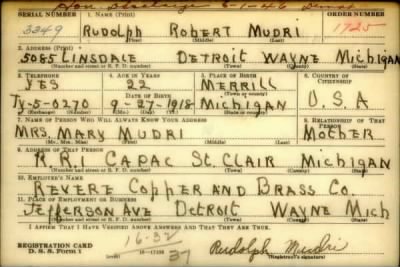 Hon. Discharge 6-1-46
SERIAL NUMBER 1. NAME (Print) ORDER NUMBER
3349 RUDOLPH ROBERT MUDRI 1725
(First) (Middle) (Last)
2. ADDRESS (Print)
5065 LINSDALE DETROIT WAYNE MICHIGAN
(Number and street or R. F. D. number) (Town) (County) (State)
3. TELEPHONE 4. AGE IN YEARS 5. PLACE OF BIRTH 6. COUNTRY OF CITIZENSHIP
YES 22 MERRILL
DATE OF BIRTH (Town or county)
Ty-5-0270 9-27-1918 MICHIGAN U.S.A
(Exchange) (Number) (Mo.) (Day) (Yr.) (State or country)
7. NAME OF PERSON WHO WILL ALWAYS KNOW YOUR ADDRESS 8. RELATIONSHIP OF THAT PERSON
MRS. MARY MUDRI MOTHER
(Mr., Mrs., Miss) (First) (Middle) (Last)
9. ADDRESS OF THAT PERSON
R.R.1 CAPAC ST. CLAIR MICHIGAN
(Number and street or R. F. D. number) (Town) (County) (State)
10. EMPLOYER'S NAME
REVERE COPPER AND BRASS CO.
11. PLACE OF EMPLOYMENT OR BUSINESS
JEFFERSON AVE DETROIT WAYNE MICH
(Number and street or R. F. D. number) (Town) (County) (State)
I AFFIRM THAT I HAVE VERIFIED ABOVE ANSWERS AND THAT THEY ARE TRUE.
16-32
REGISTRATION CARD
D. S. S. Form 1 37 Rudolph Mudri
(Registrant's signature)